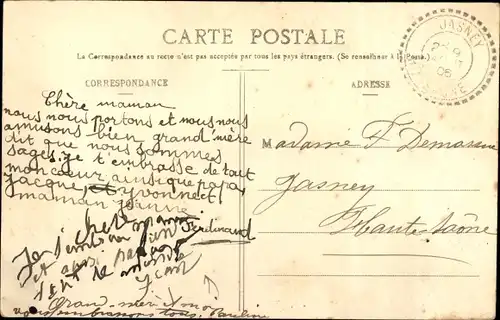 CARTE POSTALE
La Correspondance au recto n'est pas acceptée par tous les pays étrangers. (Se renseigner à la Poste.)
CORRESPONDANCE
ADRESSE
JASNEY
06
Chère maman
nous nous portons et nous nous
amusons bien grand'mère
dit que nous sommes
sages. je t'embrasse de tout
mon coeur ainsi que papa
Jacque et Yvonne et
maman
Ferdinand
Je t'embrasse
Jean
Grand-mère et moi
vous embrassons tous. Pauline
Madame F
Jasney
Haute-Saône